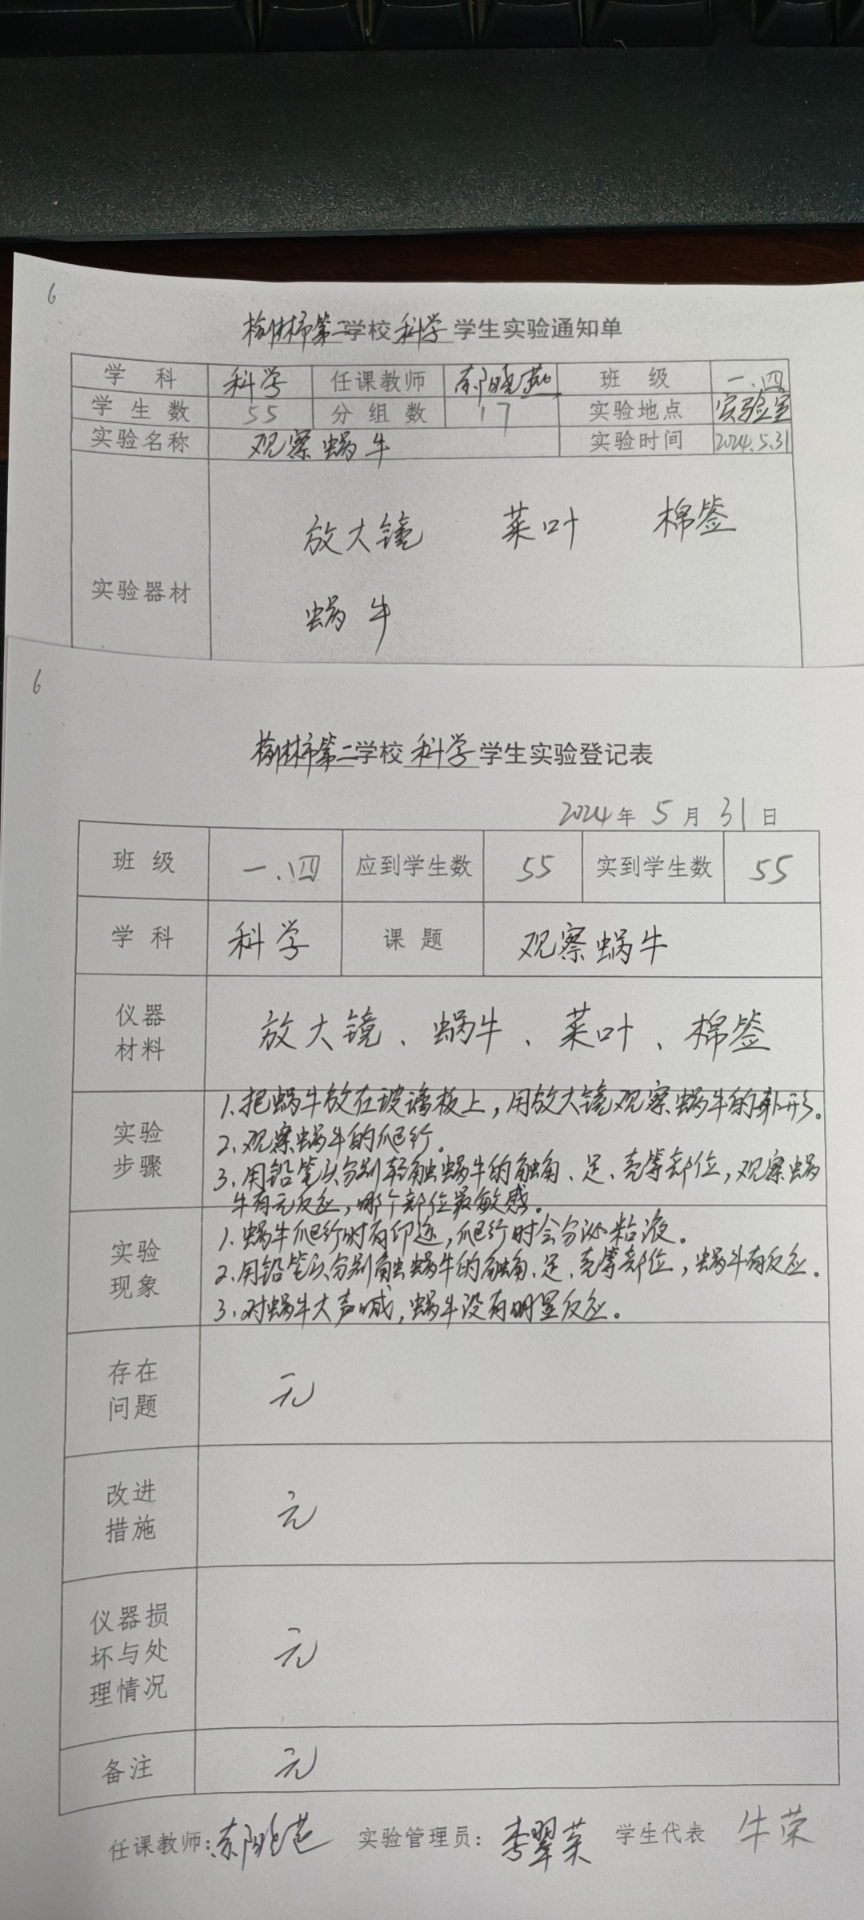 6
榆林市第二学校 科学 学生实验通知单
学科 科学 任课教师 班级 一.四
学生数 55 分组数 17 实验地点 实验室
实验名称 观察蜗牛 实验时间 2024.5.31
放大镜 菜叶 棉签
实验器材
蜗牛
6
榆林市第二学校 科学 学生实验登记表
2024年 5月 31日
班级 一.四 应到学生数 55 实到学生数 55
学科 科学 课题 观察蜗牛
仪器
材料
放大镜、蜗牛、菜叶、棉签
实验
步骤
1.把蜗牛放在玻璃板上,用放大镜观察蜗牛的外形。
2.观察蜗牛的爬行。
3.用铅笔头分别轻触蜗牛的触角、足、壳等部位,观察蜗
牛有无反应,哪个部位最敏感。
实验
现象
1.蜗牛爬行时有印迹,爬行时会分泌粘液。
2.用铅笔头分别触蜗牛的触角、足、壳等部位,蜗牛有反应.
3.对蜗牛大声喊,蜗牛没有明显反应。
存在
问题
无
改进
措施
无
仪器损
坏与处
理情况
无
备注 无
任课教师: 实验管理员: 李翠英 学生代表 牛荣